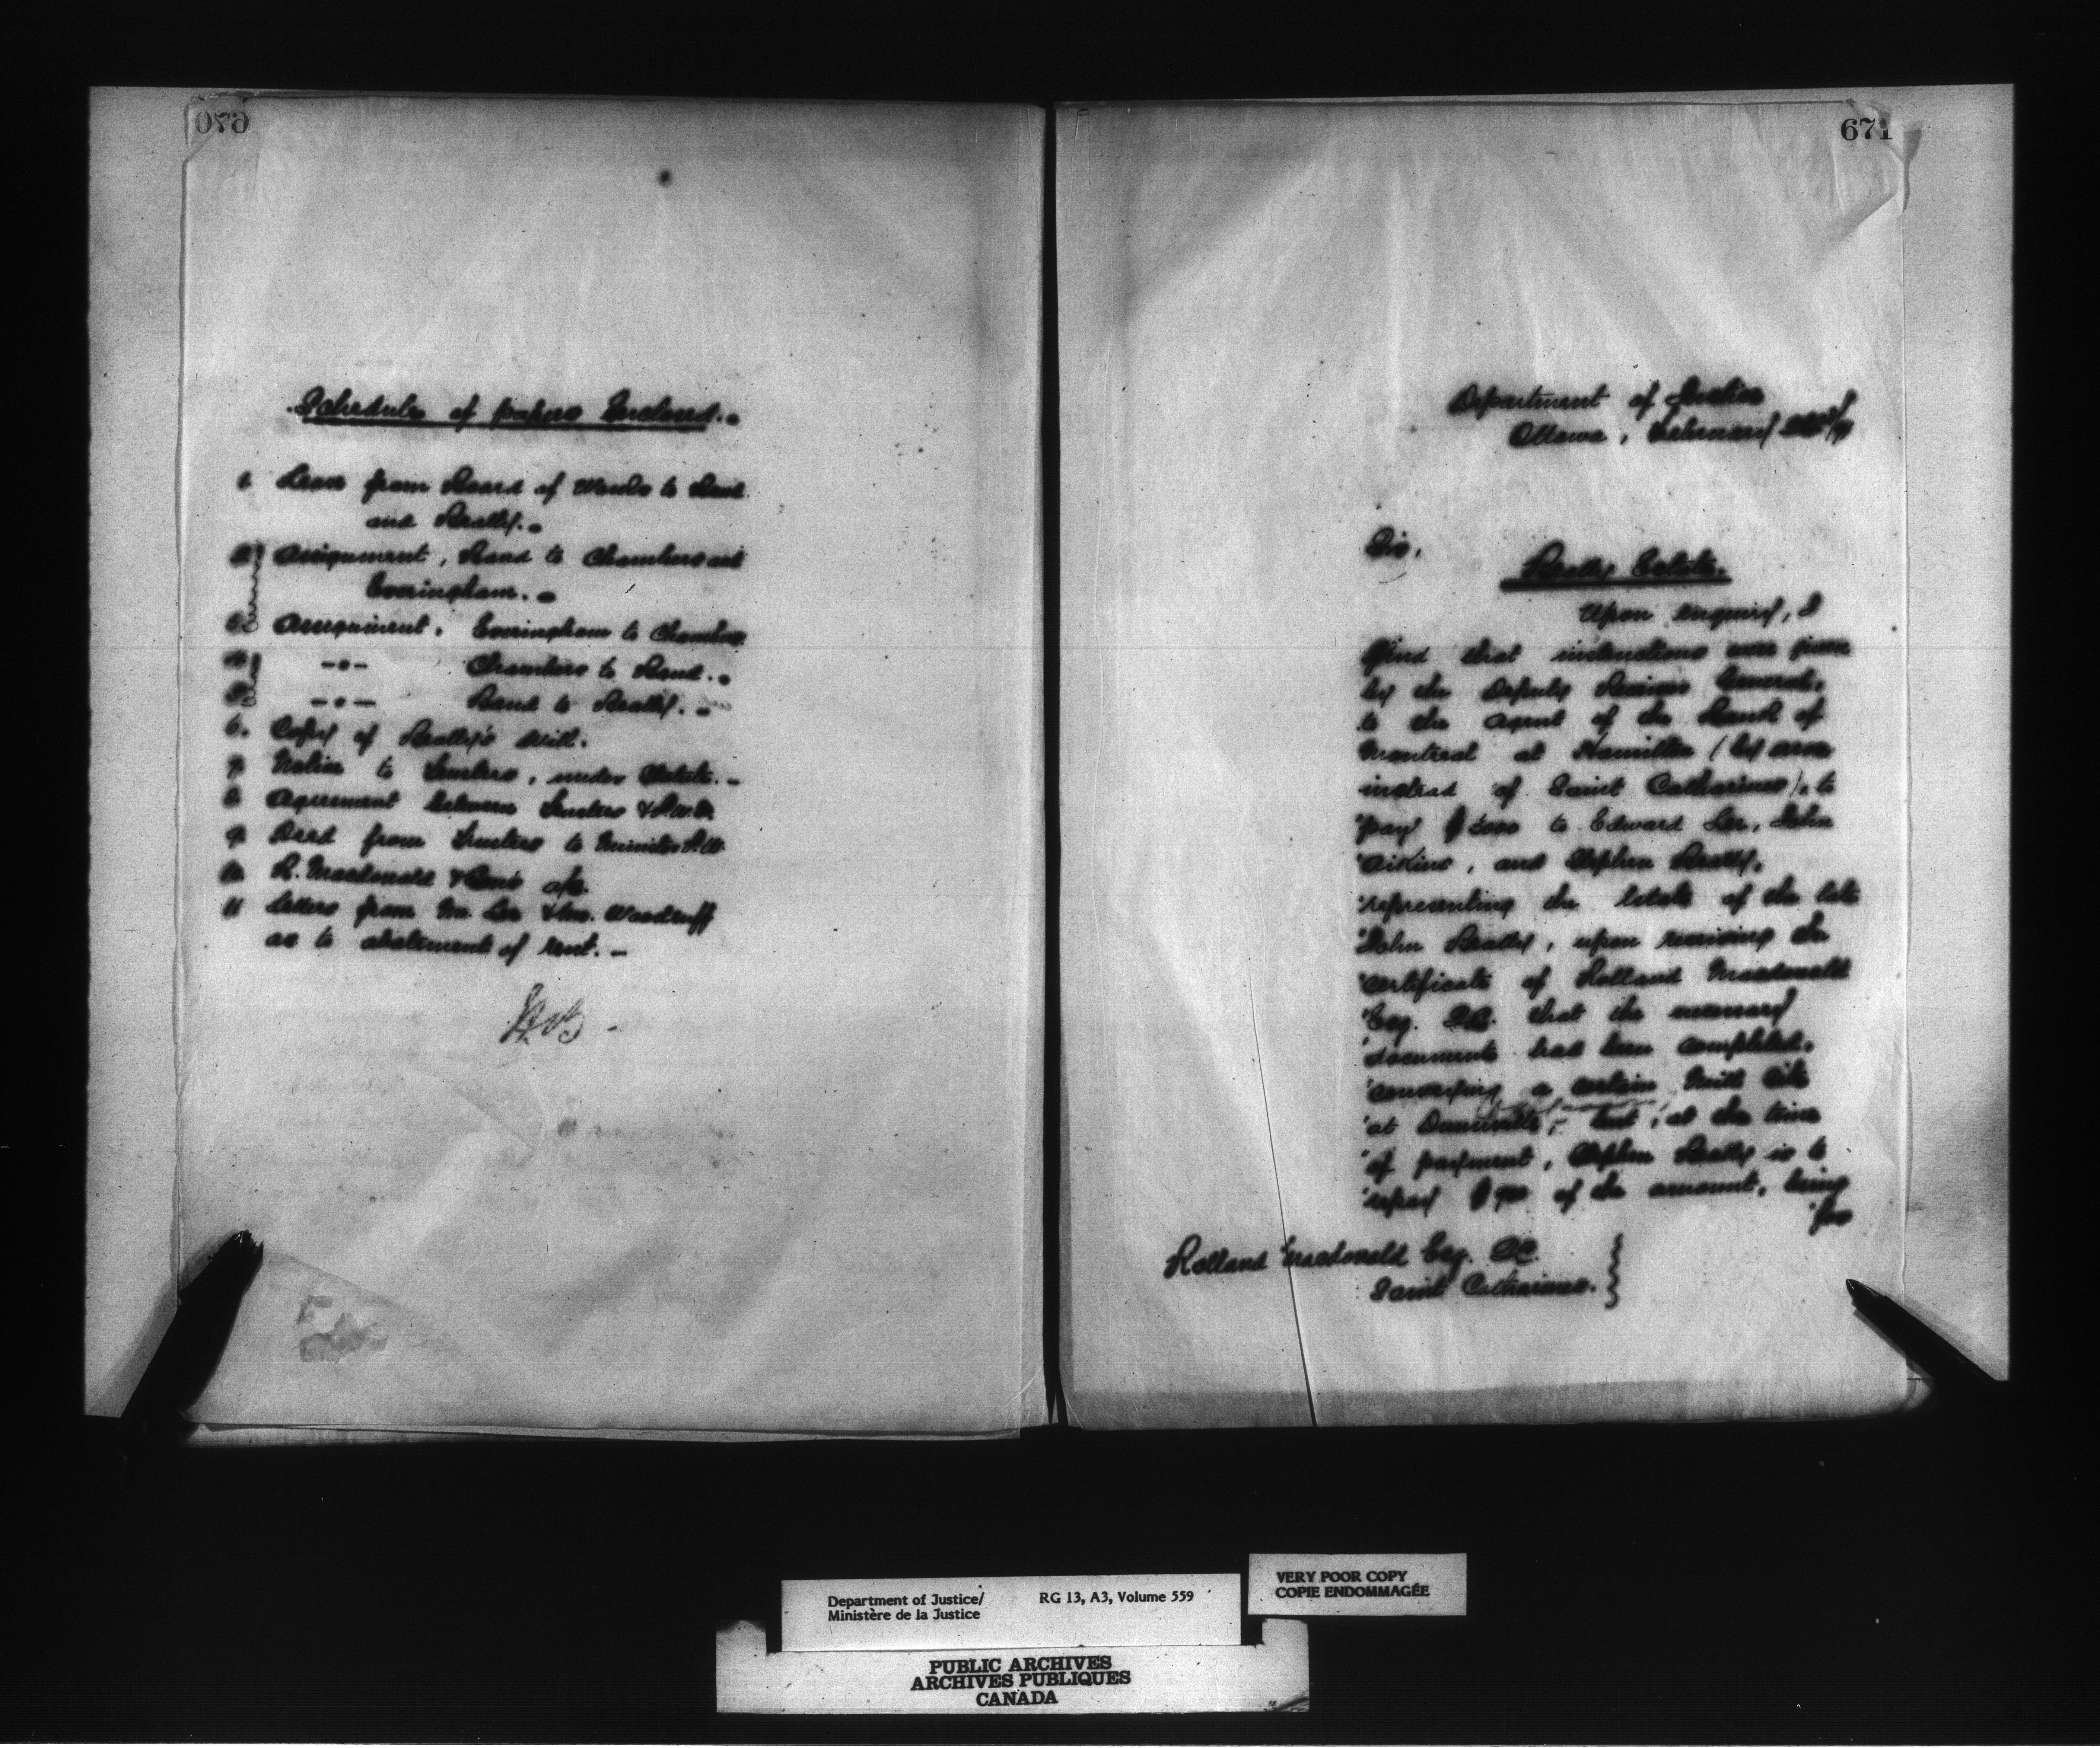 670
Schedule of papers Enclosed.
1. Lease from Board of Works to Rand
and Beatty.
2 Assignment, Rand to Chambers and
Everingham.
3 Assignment. Everingham to Chambers
4 -"- Chambers to Rand.
5 -"- Rand to Beatty.
6. Copy of Beatty's Will.
7 Notice to Trustees, under Statute.
8 Agreement between Trustees & P.W.D.
9 Deed from Trustees to Minister P.W.
10 R. Macdonald & Co's a/c.
11 Letters from Mr. Lee & Mr. Woodruff
as to abatement of rent.
671
Department of Justice
Ottawa, February
Sir,
Beatty Estate.
Upon enquiry, I
find that instructions were given
by the Deputy Receiver General,
to the Agent of the Bank of
Montreal at Hamilton (by error
instead of Saint Catharines), to
"pay $ to Edward Lee, John
"Aikins, and Stephen Beatty,
"representing the Estate of the late
"John Beatty, upon receiving the
"certificate of Rolland Macdonald
"Esq. Q.C. that the necessary
"documents had been completed,
"conveying a certain Mill Site
"at Dunnville, - but, at the time
"of payment, Stephen Beatty is to
"repay $ of the amount, being
"for
Rolland Macdonald Esq. QC
Saint Catharines.
Department of Justice/
Ministère de la Justice
RG 13, A3, Volume 559
VERY POOR COPY
COPIE ENDOMMAGÉE
PUBLIC ARCHIVES
ARCHIVES PUBLIQUES
CANADA